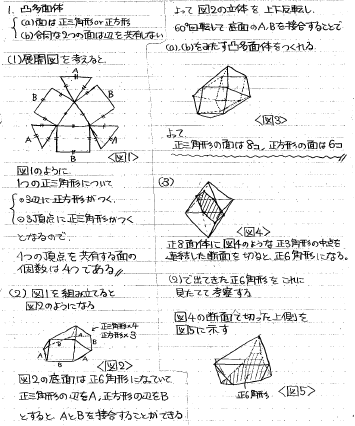 1. 凸多面体
(a)面は正三角形or正方形
(b)合同な2つの面は辺を共有しない
(1)展開図を考えると
B
B
A
A
B
<図1>
図1のように
1つの正三角形について
◦3辺に正方形がつく
◦3頂点に正三角形がつく
となるので、
1つの頂点を共有する面の
個数は4つである
(2) 図1を組み立てると
図2のようになる
正三角形×4
正方形×3
A
B
A
B
<図2>
図2の底面は正6角形になっていて
正三角形の辺をA, 正方形の辺をB
とすると AとBを接合することができる
よって 図2の立体を 上下反転し、
60°回転して 底面のA,Bを接合することで
(a),(b)をみたす凸多面体をつくれる
<図3>
よって
正三角形の面は8コ, 正方形の面は6コ
(3)
<図4>
正8面体に図4のような 正3角形の中点を
連結した断面を切ると、正6角形になる。
(2)で出てきた正6角形を これに
見たてて考察する
図4の断面で切った上側を
図5に示す
正6角形
<図5>